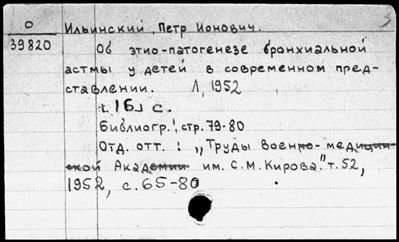 О
39820
Ильинский, Петр Ионович.
Об этио-патогенезе бронхиальной
астмы у детей в современном пред-
ставлении. Л, 1952
[16] с.
Библиогр.: стр. 79-80
Отд. отт.: „Труды Военно-медицин-
ской Академии им. С.М. Кирова." т. 52,
1952, с. 65-80